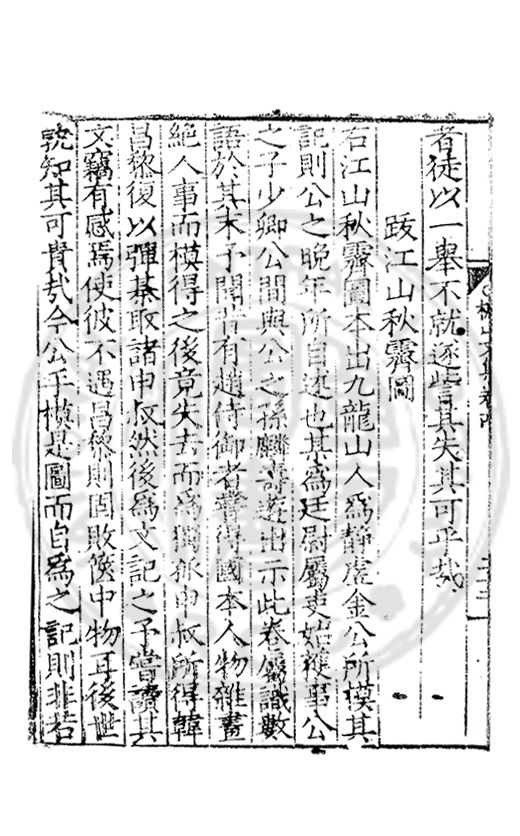 者徒以一舉不就遂訾其失其可乎哉
跋江山秋霽圖
右江山秋霽圖本出九龍山人爲靜虛金公所模其
記則公之晚年所自述也某爲廷尉屬吏始獲事公
之子少卿公間與公之孫麟壽遊出示此卷屬識數
語於其末予聞昔有趙侍御者嘗得國本人物雜畫
絕人事而模得之後竟失去而爲獨孤申叔所得韓
昌黎復以彈棊取諸申叔然後爲文記之予嘗讀其
文竊有感焉使彼不遇昌黎則固敗篋中物耳後世
孰知其可貴哉今公手模是圖而自爲之記則非若
山文集卷